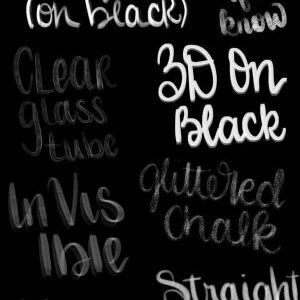 (on black)
if
know
CLear
glass
tube
3D On
Black
InVis
Ible
glittered
Chalk
Straight